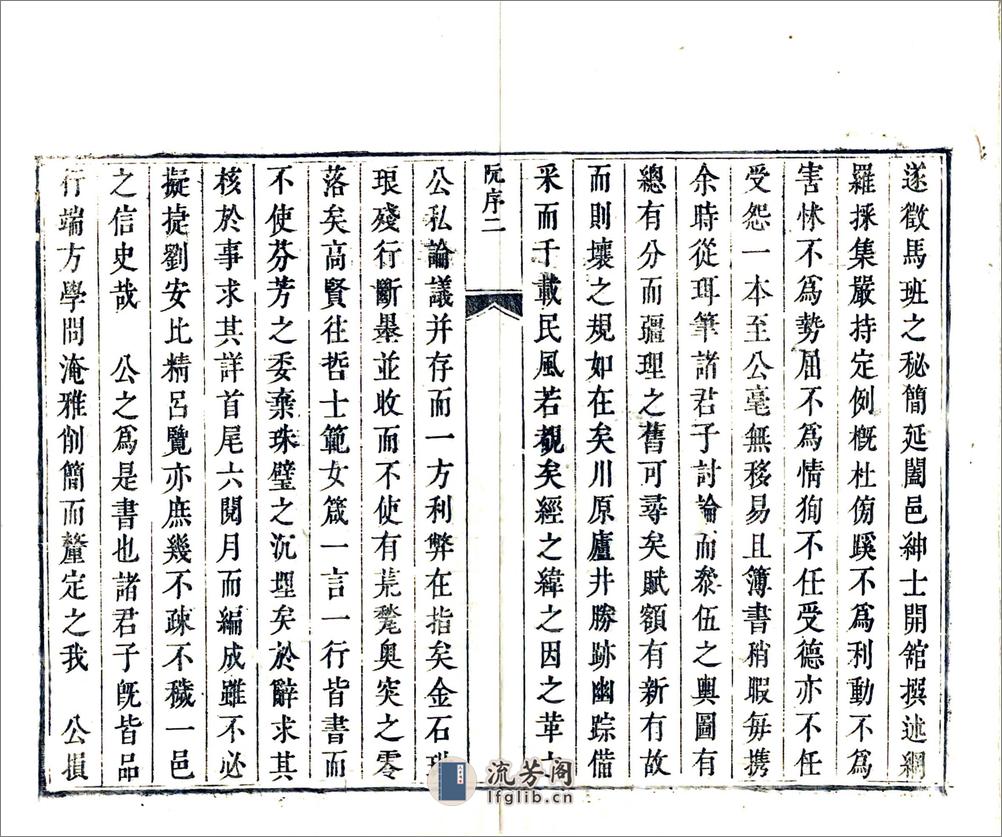 遂徵馬班之秘簡延闔邑紳士開舘撰述網
羅採集嚴持定例槪杜傍蹊不爲利動不爲
害怵不爲勢屈不爲情狥不任受德亦不任
受怨一本至公毫無移易且簿書稍暇每携
余時從珥筆諸君子討論而叅伍之輿圖有
總有分而疆理之舊可尋矣賦額有新有故
而則壤之規如在矣川原廬井勝跡幽踪備
采而千載民風若覩矣經之緯之因之革
阮序二
公私論議并存而一方利弊在指矣金石
琅殘行斷墨並收而不使有荒蹵奧突之零
落矣高賢往哲士範女箴一言一行皆書而
不使芬芳之委棄珠璧之沉埋矣於辭求其
核於事求其詳首尾六閱月而編成雖不必
擬捷劉安比精呂覽亦庶幾不疎不穢一邑
之信史哉 公之爲是書也諸君子旣皆品
行端方學問淹雅削簡而釐定之我 公損
流芳阁
lfglib.cn